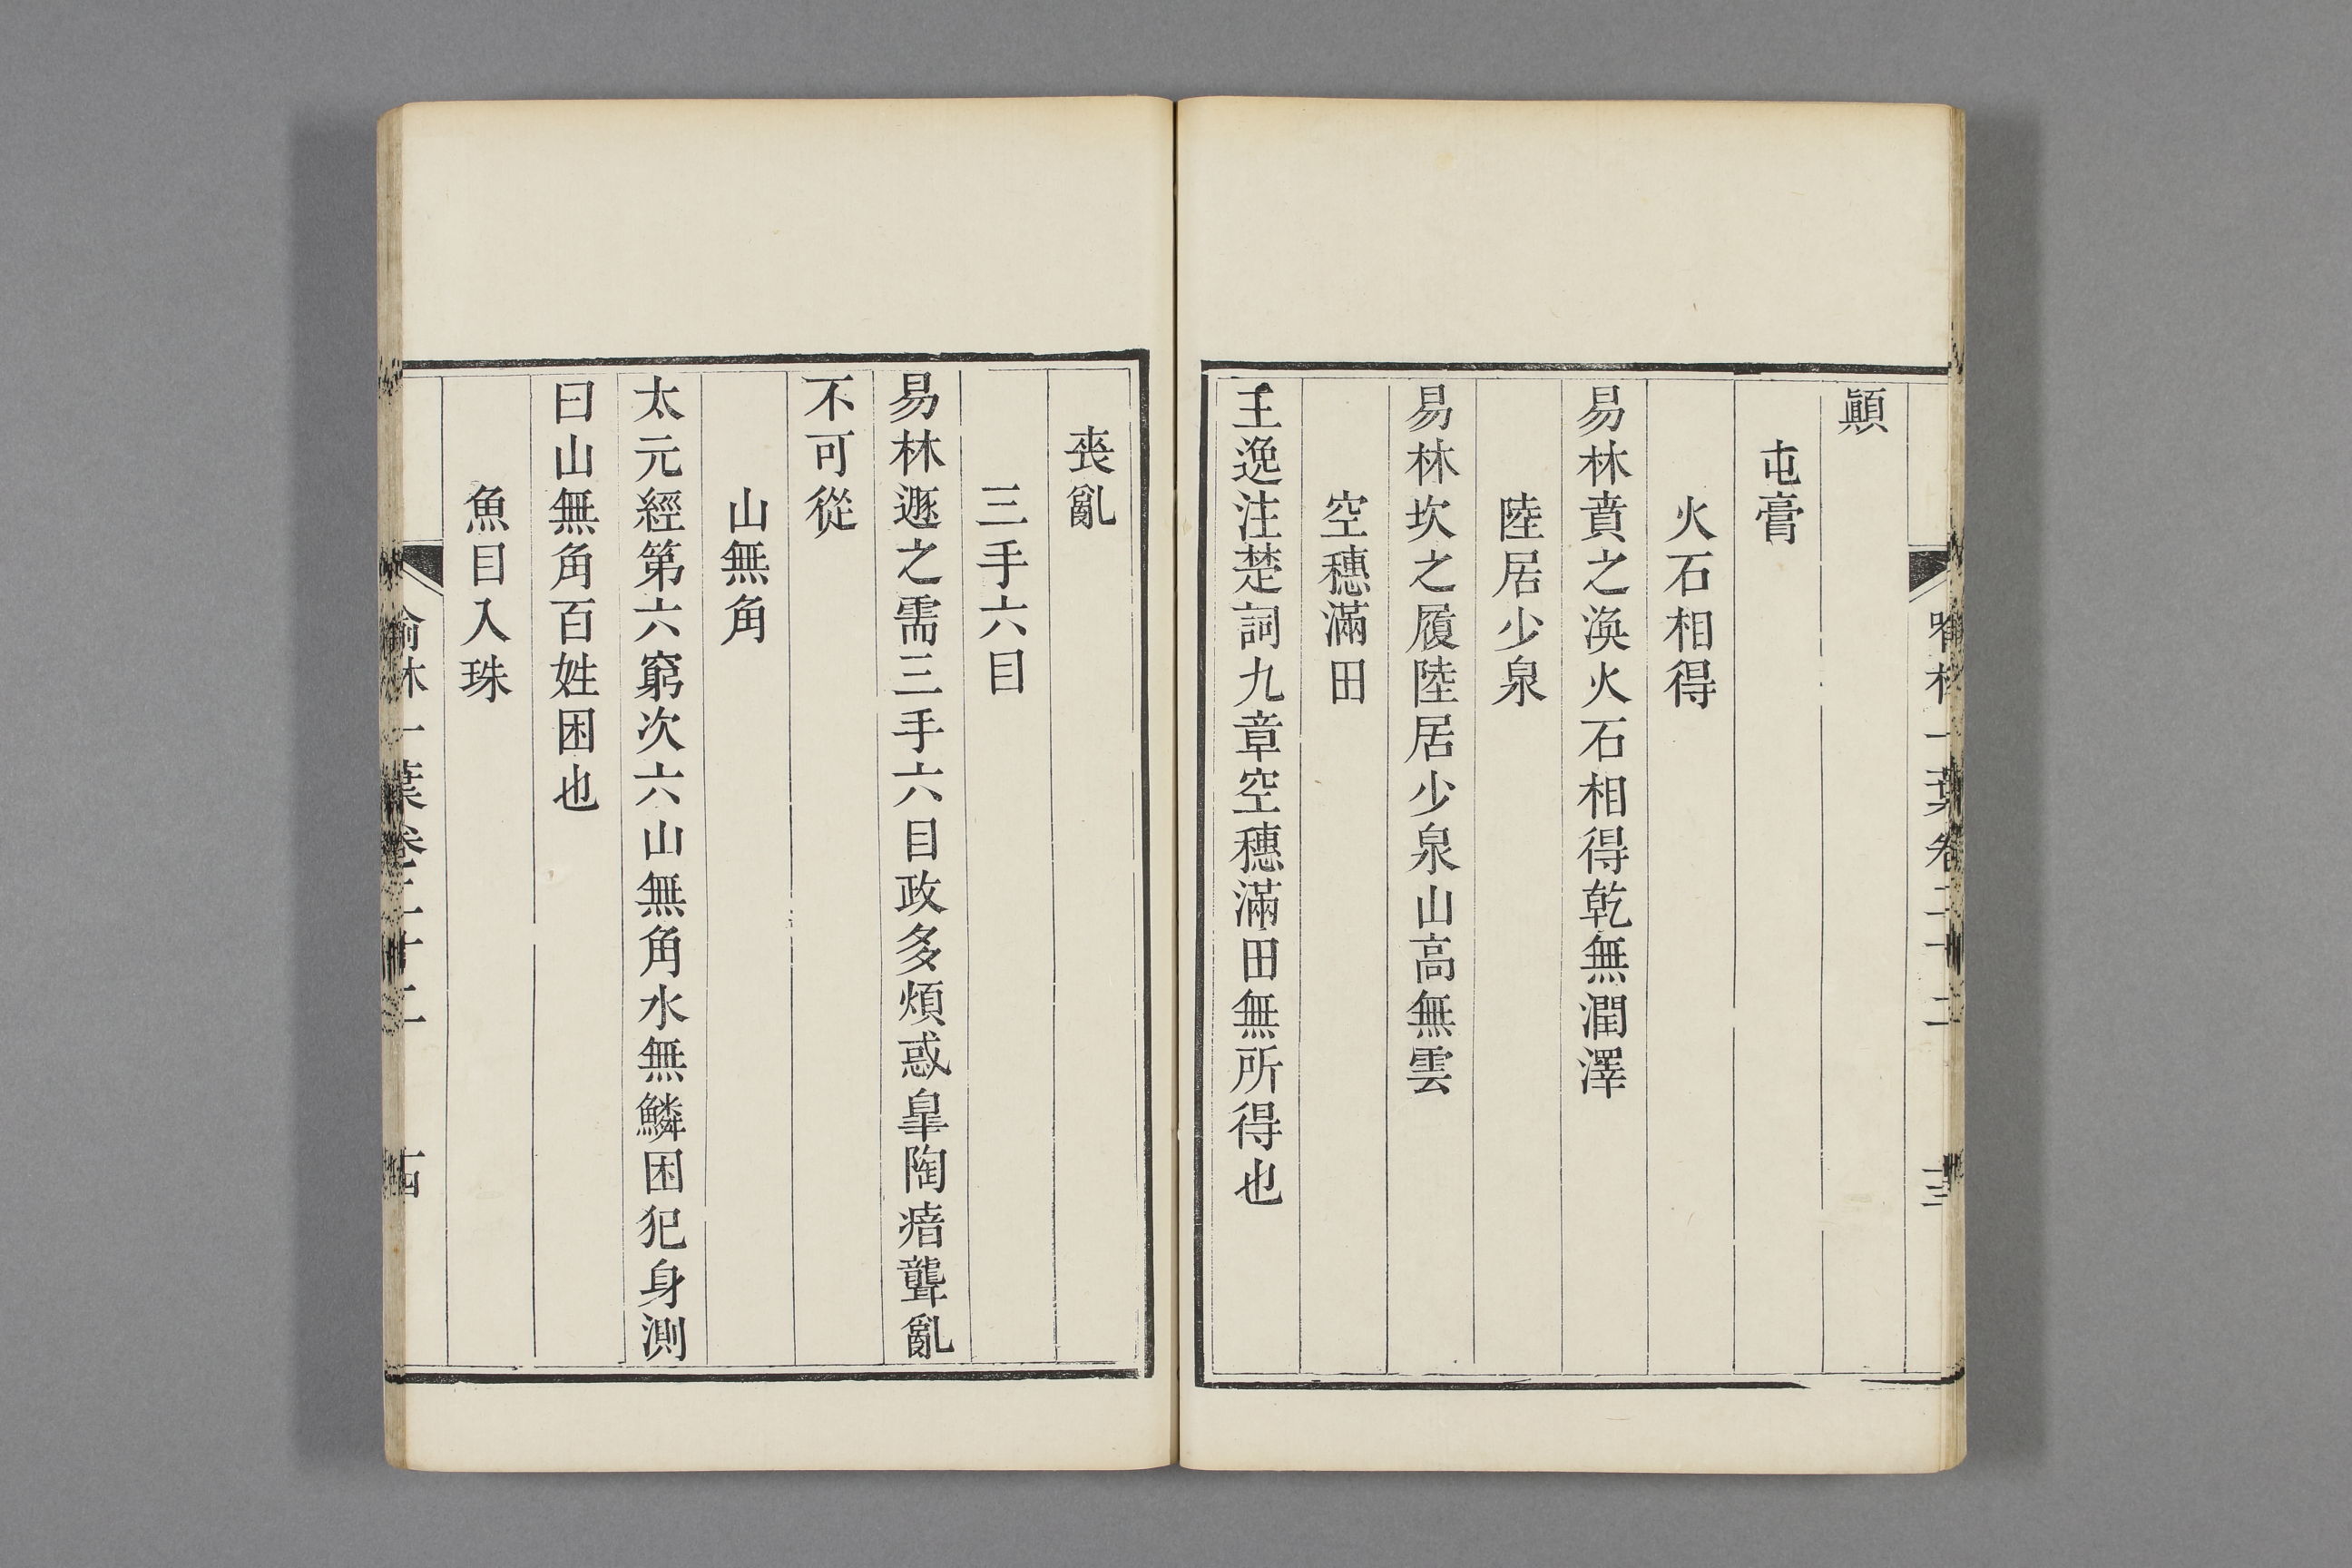 顚
屯膏
火石相得
易林賁之渙火石相得乾無潤澤
陸居少泉
易林坎之履陸居少泉山高無雲
空穗滿田
王逸注楚詞九章空穗滿田無所得也
喪亂
三手六目
易林遯之需三手六目政多煩惑皐陶瘖聾亂
不可從
山無角
太元經第六窮次六山無角水無鱗困犯身測
曰山無角百姓困也
魚目入珠
喻林一葉卷二十二